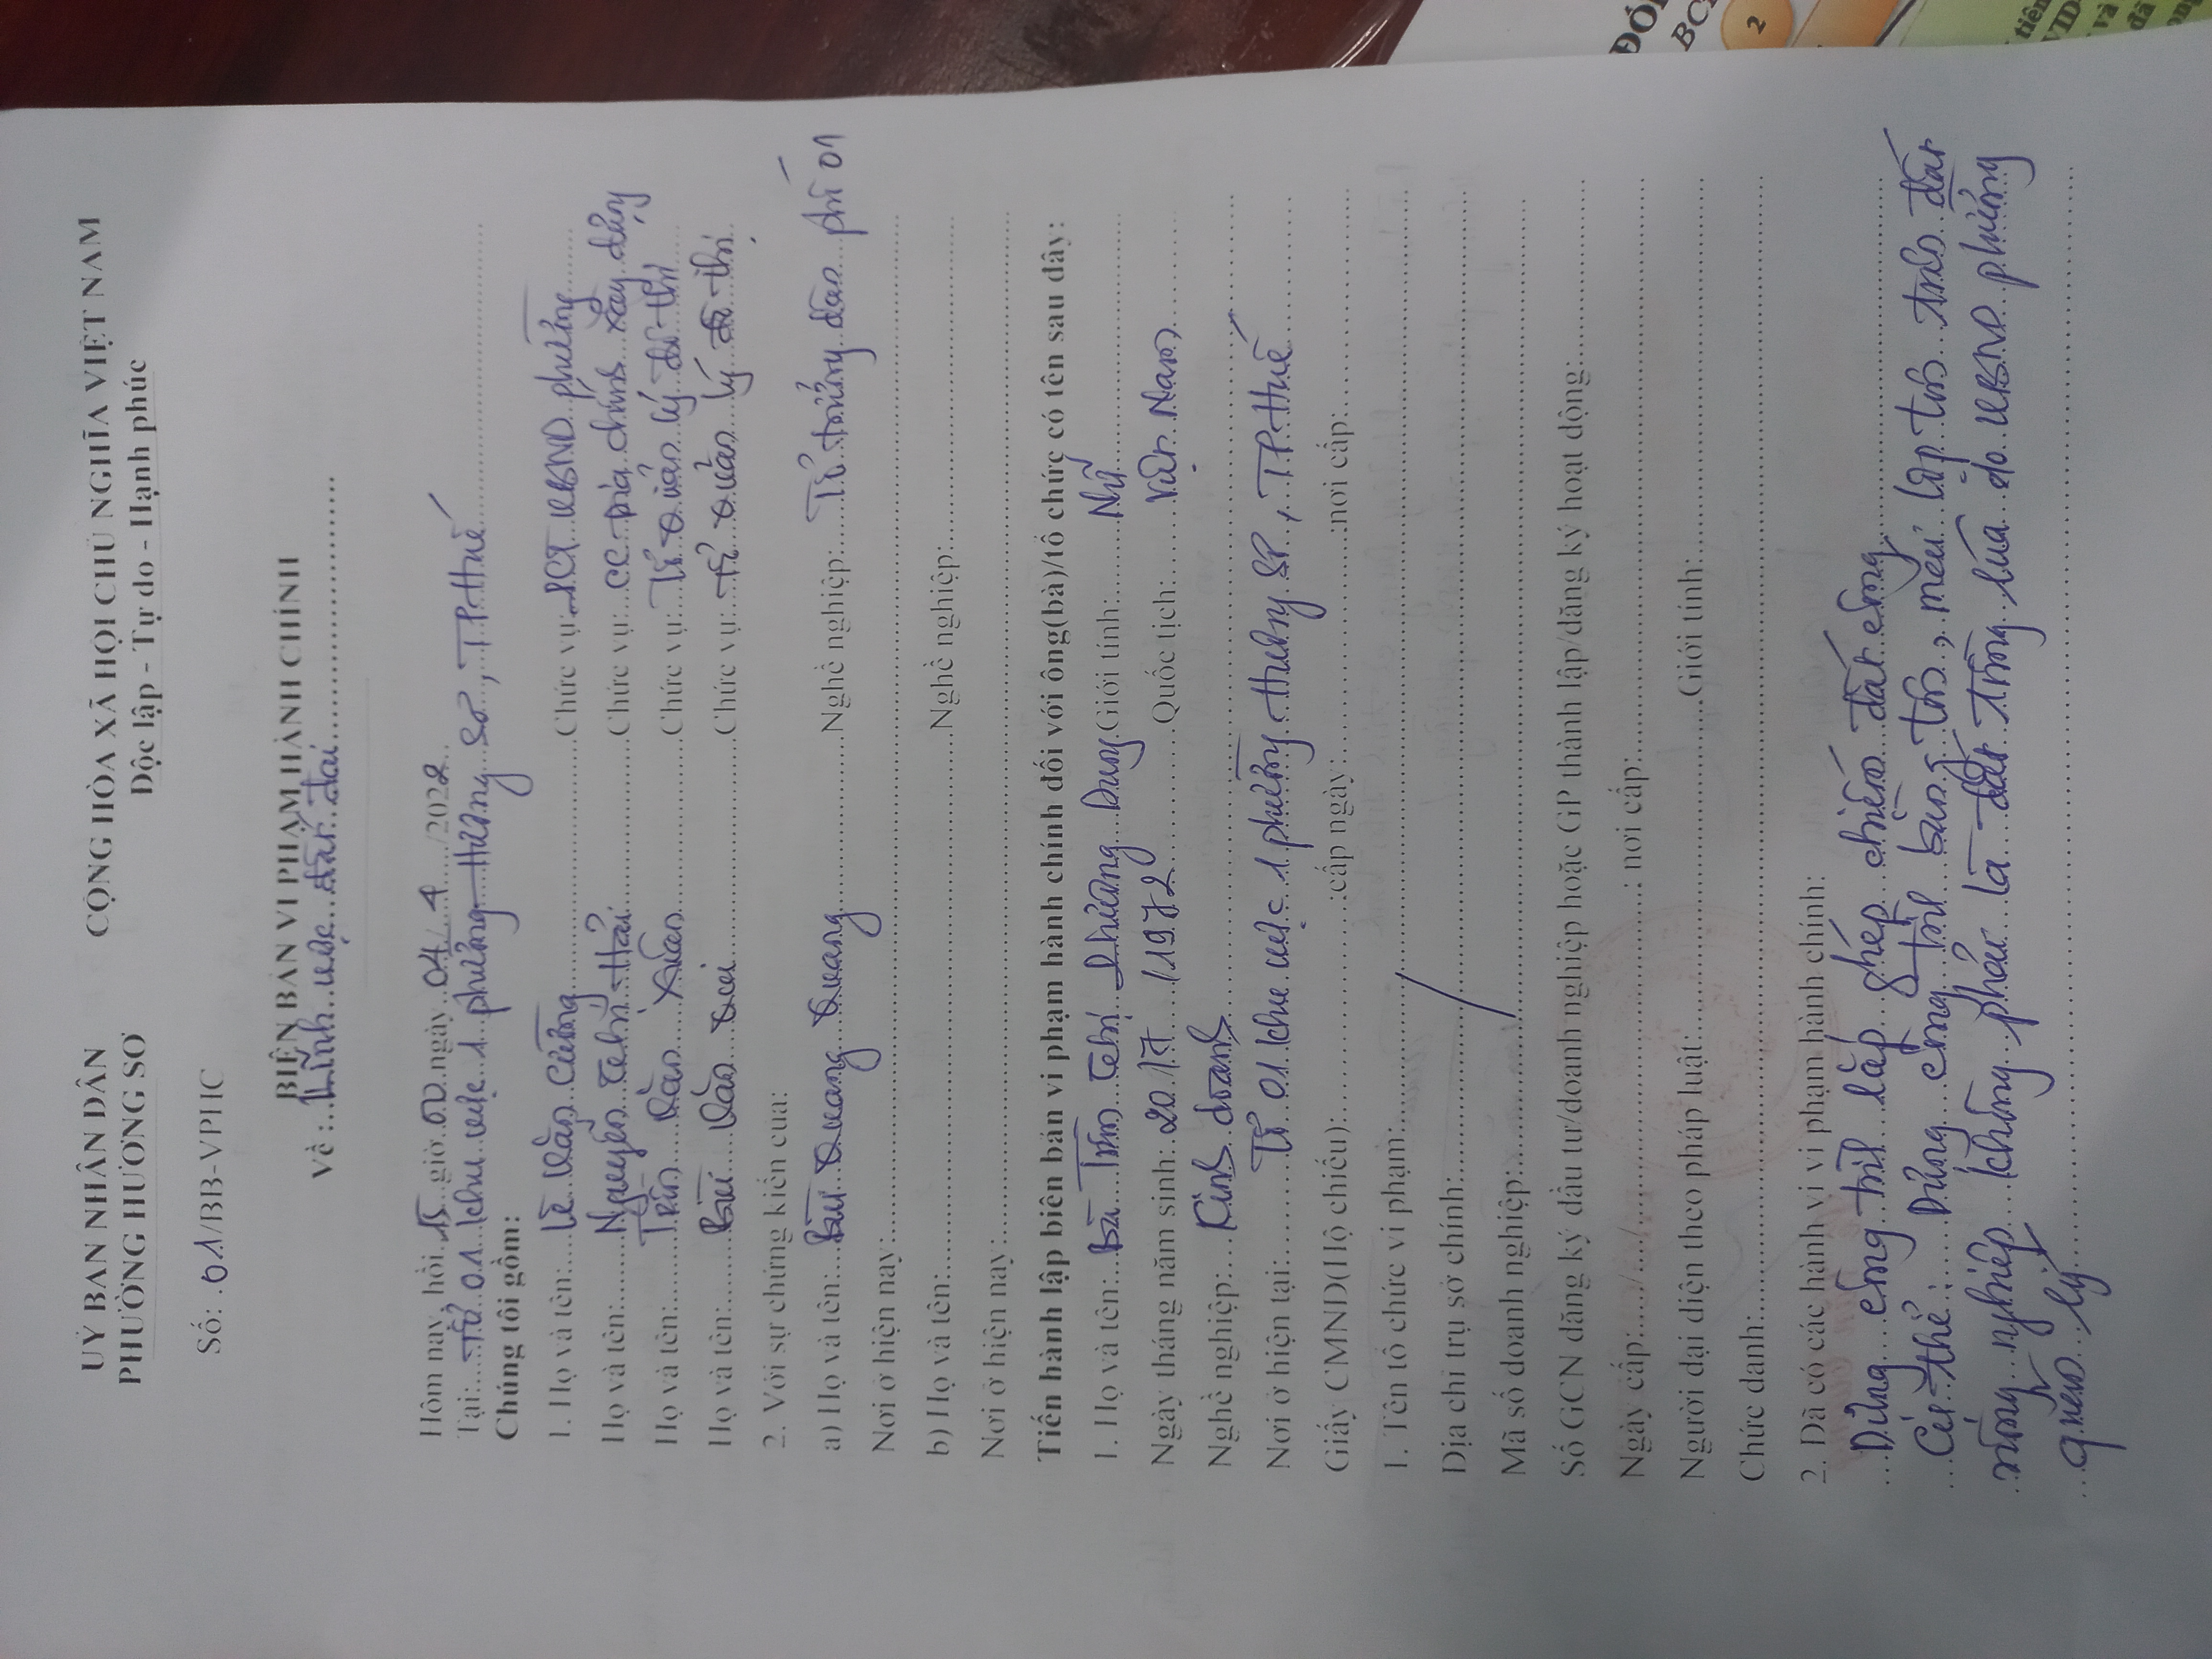 UỶ BAN NHÂN DÂN
PHƯỜNG HƯƠNG SƠ
CỘNG HÒA XÃ HỘI CHỦ NGHĨA VIỆT NAM
Độc lập - Tự do - Hạnh phúc
Số: 01/BB-VPHC
BIÊN BẢN VI PHẠM HÀNH CHÍNH
Về: Lĩnh vực đất đai
Hôm nay, hồi 15 giờ 00 ngày 04/4/2022
Tại: Tổ 01 khu vực 1 phường Hương Sơ, TP. Huế
Chúng tôi gồm:
1. Họ và tên: Lê Văn Cường Chức vụ: PCT UBND phường
Họ và tên: Nguyễn Thị Hải Chức vụ: CC Địa chính xây dựng
Họ và tên: Trần Văn Xuân Chức vụ: Tổ Quản lý đô thị
Họ và tên: Bùi Văn Chức vụ: Tổ Quản lý đô thị
2. Với sự chứng kiến của:
a) Họ và tên: Bùi Quang Quang Nghề nghiệp: Tổ trưởng dân phố 01
Nơi ở hiện nay:
b) Họ và tên: Nghề nghiệp:
Nơi ở hiện nay:
Tiến hành lập biên bản vi phạm hành chính đối với ông(bà)/tổ chức có tên sau đây:
1. Họ và tên: Bà Trần Thị Phương Dung Giới tính: Nữ
Ngày tháng năm sinh: 20/7/1972 Quốc tịch: Việt Nam
Nghề nghiệp: Kinh doanh
Nơi ở hiện tại: Tổ 01 khu vực 1 phường Hương Sơ, TP. Huế
Giấy CMND(Hộ chiếu): :cấp ngày: :nơi cấp:
1. Tên tổ chức vi phạm:
Địa chỉ trụ sở chính:
Mã số doanh nghiệp:
Số GCN đăng ký đầu tư/doanh nghiệp hoặc GP thành lập/đăng ký hoạt động:
Ngày cấp: / / : nơi cấp:
Người đại diện theo pháp luật: Giới tính:
Chức danh:
2. Đã có các hành vi vi phạm hành chính:
Dựng công trình lắp ghép chiếm đất công
Cụ thể: Dựng công trình bằng tôn, mái lợp tôn trên đất
nông nghiệp không phải là đất trồng lúa do UBND phường
quản lý